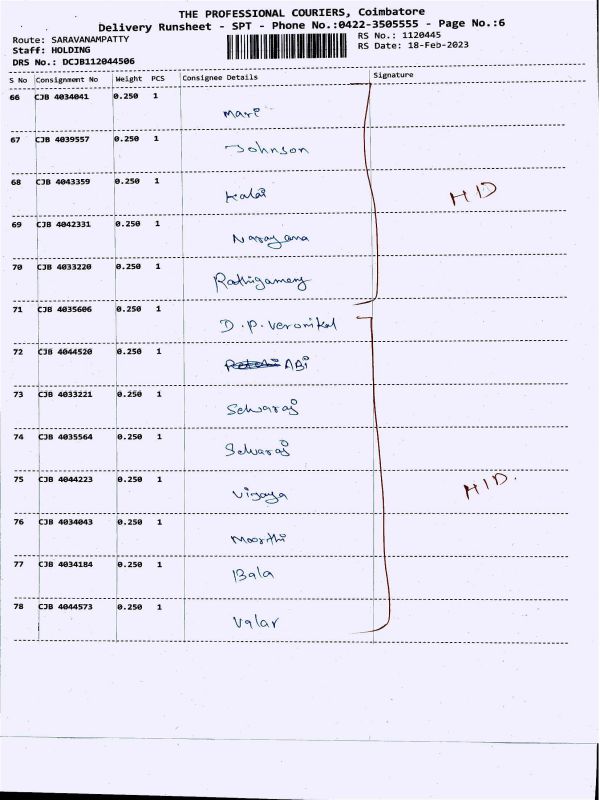 THE PROFESSIONAL COURIERS, Coimbatore
Delivery Runsheet - SPT - Phone No.:0422-3505555 - Page No.:6
Route: SARAVANAMPATTY RS No.: 1120445
Staff: HOLDING RS Date: 18-Feb-2023
DRS No.: DCJB112044506
S No Consignment No Weight PCS Consignee Details Signature
66 CJB 4034041 0.250 1
Mari
67 CJB 4039557 0.250 1
Johnson
68 CJB 4043359 0.250 1
Kalai HID
69 CJB 4042331 0.250 1
Narayana
70 CJB 4033220 0.250 1
71 CJB 4035606 0.250 1
D.P. Veronikal
72 CJB 4044520 0.250 1
ABi
73 CJB 4033221 0.250 1
Selvaraj
74 CJB 4035564 0.250 1
Selvaraj
75 CJB 4044223 0.250 1
Vijaya HID.
76 CJB 4034043 0.250 1
Moorthi
77 CJB 4034184 0.250 1
Bala
78 CJB 4044573 0.250 1
Valar